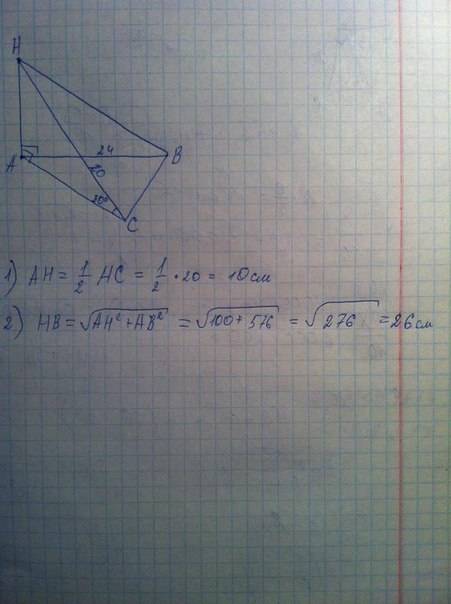 H
24
A
B
20
30°
C
1) AH = 1/2 HC = 1/2 • 20 = 10 см
2) HB = √AH² + AB² = √100 + 576 = √276 = 26 см